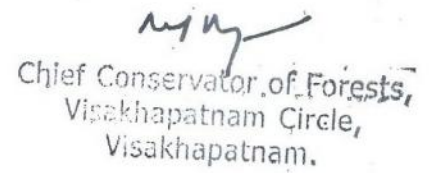 Chief Conservator of Forests,
Visakhapatnam Circle,
Visakhapatnam.